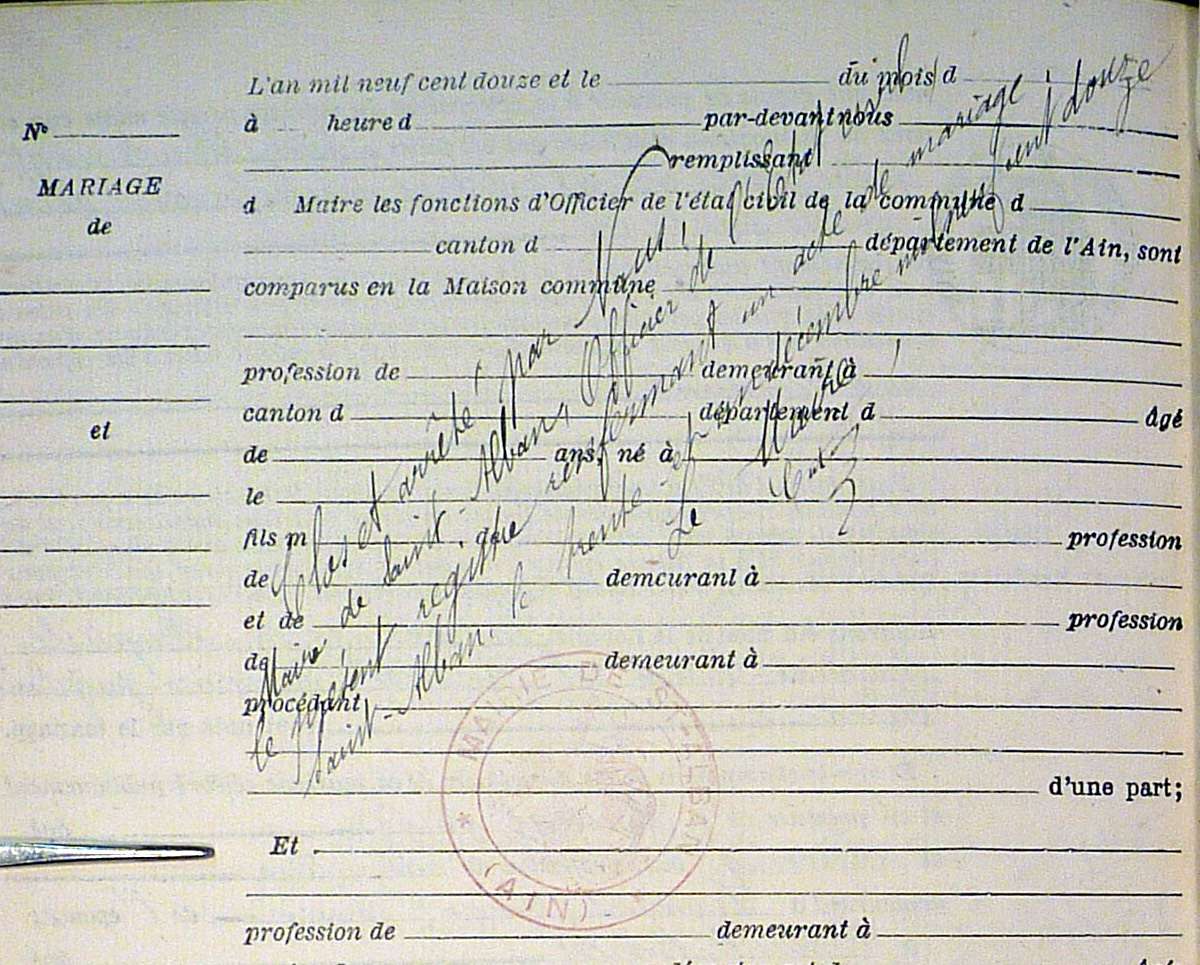 L'an mil neuf cent douze et le du mois d
à heure d par-devant nous
remplissant
d Maire les fonctions d'Officier de l'état civil de la commune d
canton d département de l'Ain, sont
comparus en la Maison commune
profession de demeurant à
canton d département d Agé
de ans, né à
le
fils m de profession
de demeurant à
et de profession
de demeurant à
procédant
d'une part;
Et
profession de demeurant à
No
MARIAGE
de
et
Clos et arrêté par Nous
Maire de Saint-Alban, Officier de
le présent registre renfermant un acte de mariage
Saint-Alban, le trente-et-un décembre mil neuf cent douze
Le Maire,
MAIRIE DE ST-ALBAN
* (AIN) *